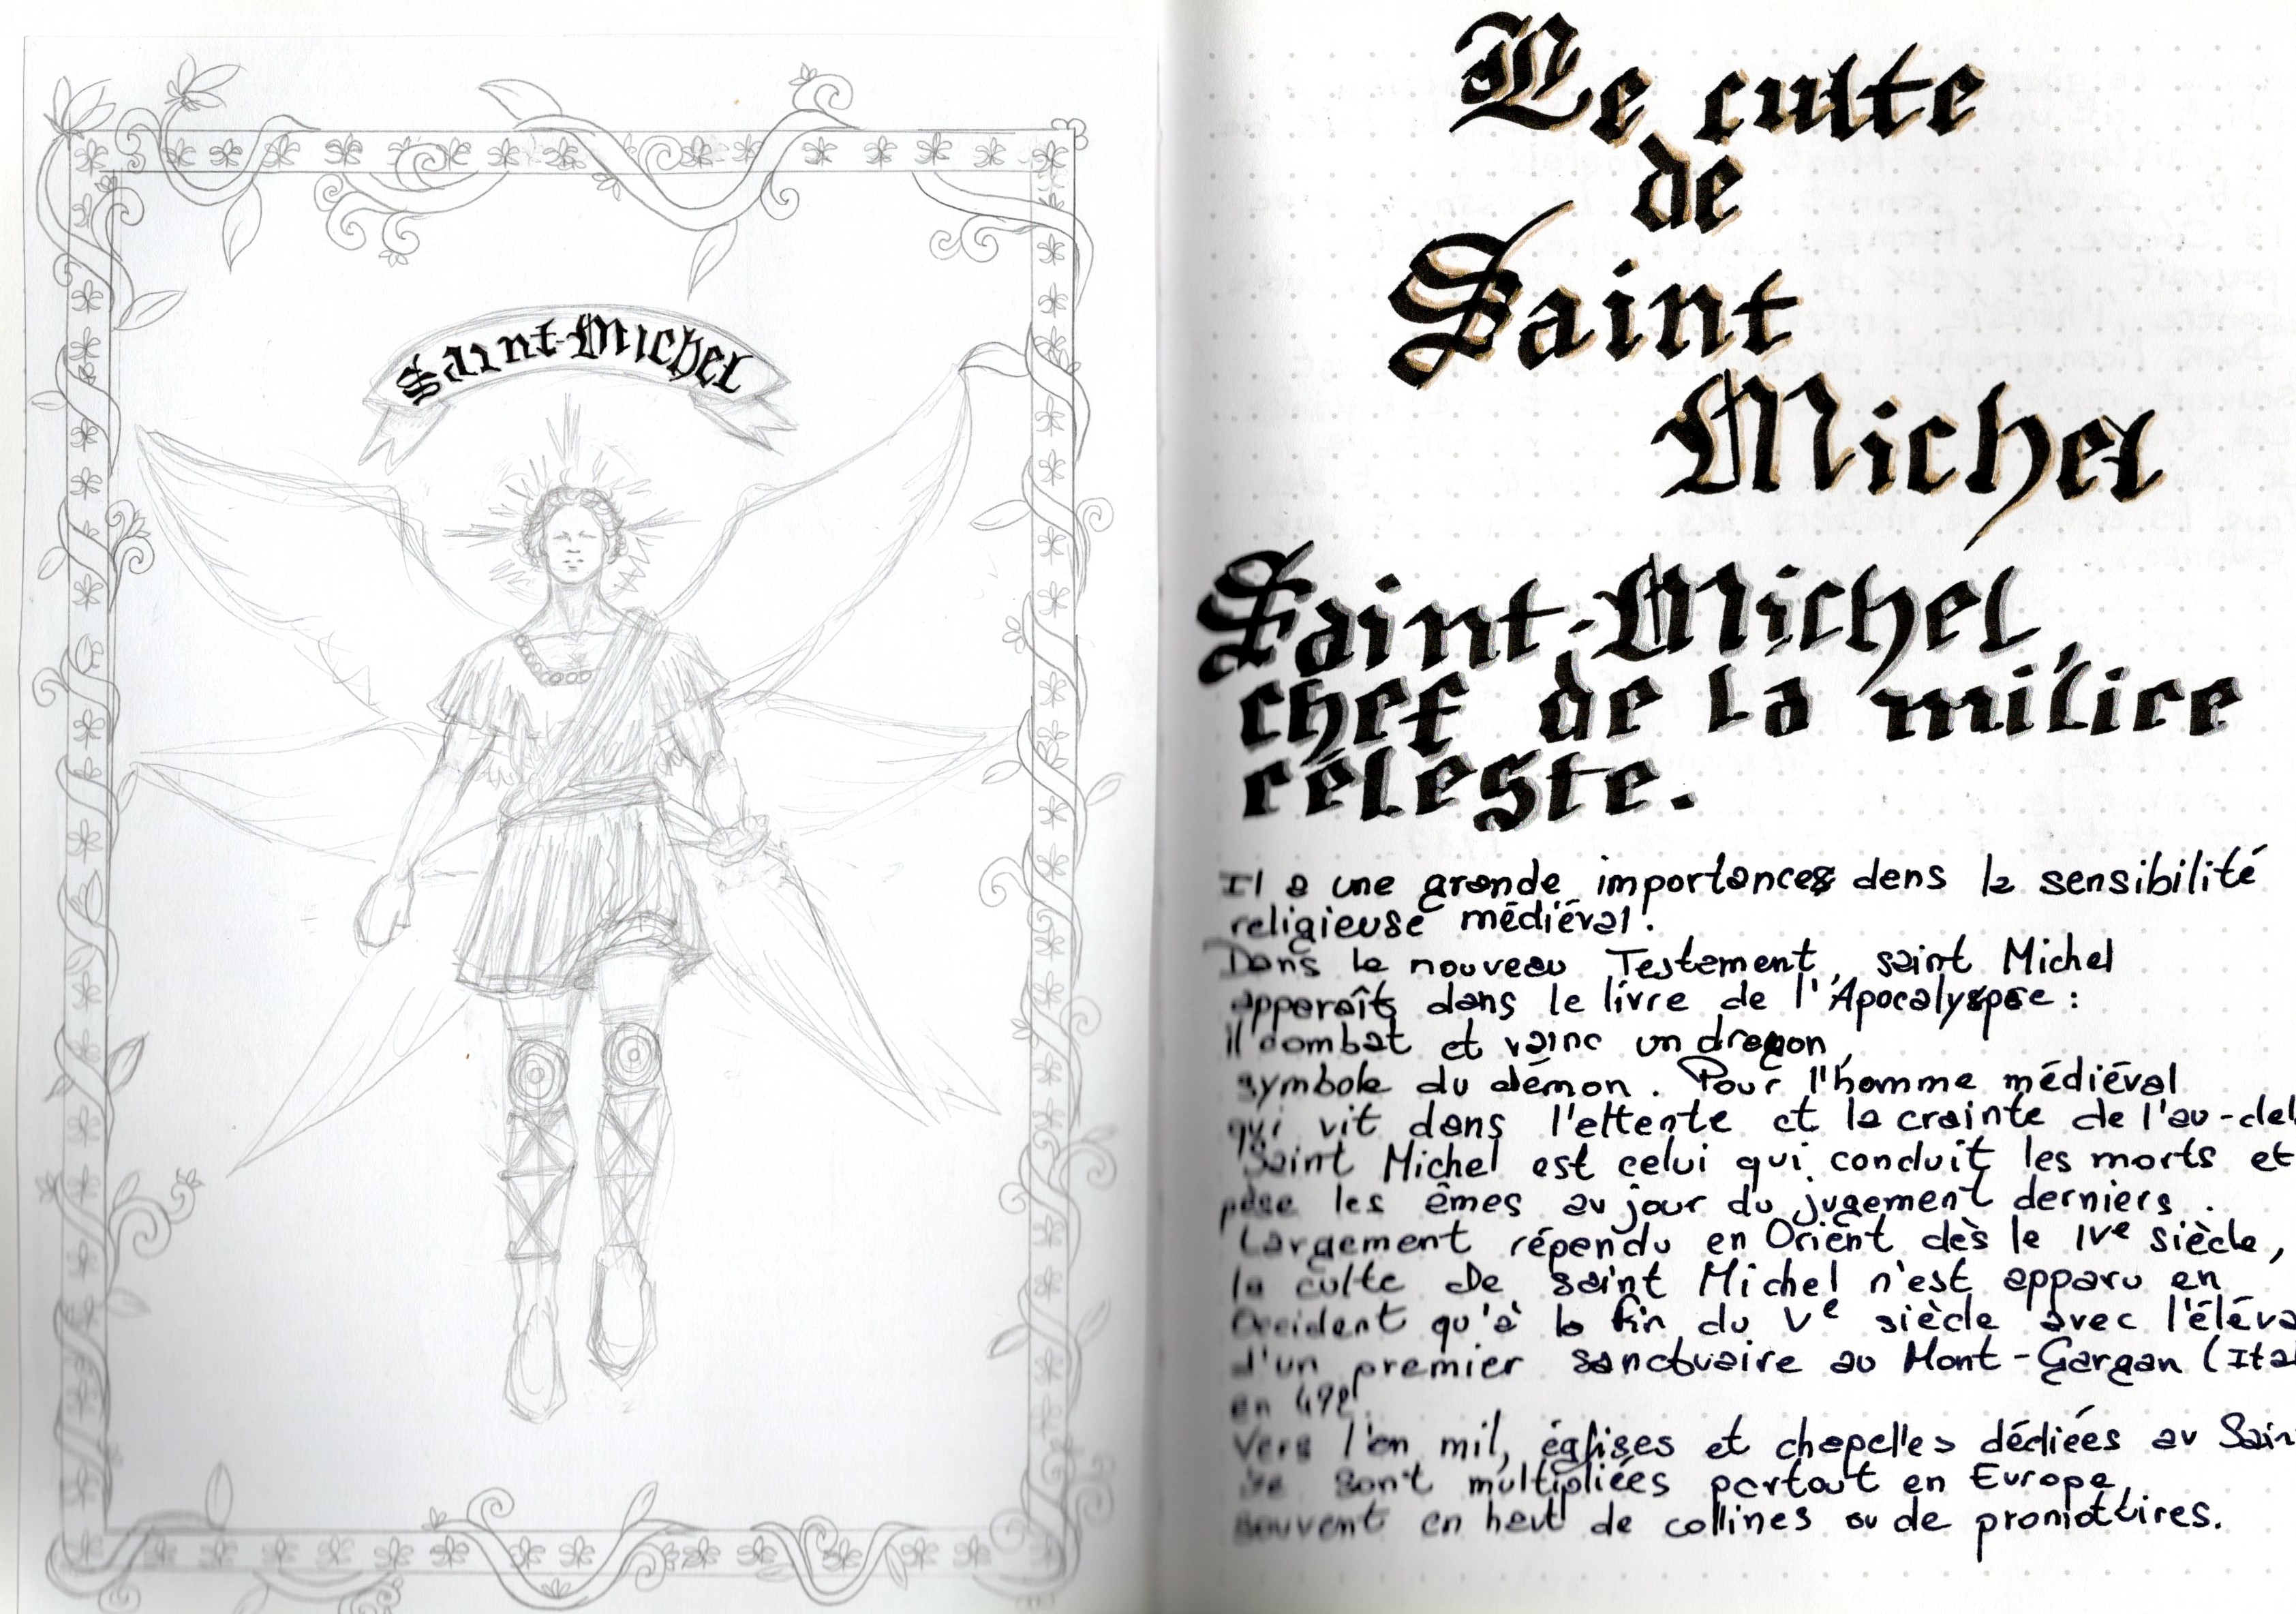 Saint-Michel
Le culte
de
Saint
Michel
Saint-Michel,
chef de la milice
céleste.
Il a une grande importances dens la sensibilité
religieuse médiéval.
Dans le nouveau Testement, saint Michel
apparaît dans le livre de l'Apocalyspse :
il combat et vainc un dragon,
symbole du démon. Pour l'homme médiéval
qui vit dans l'attente et la crainte de l'au-del
Saint Michel est celui qui conduit les morts et
pèse les êmes au jour du jugement derniers.
Largement répendu en Orient dès le IVe siècle,
le culte De saint Michel n'est apparu en
Occident qu'à la fin du Ve siècle avec l'éléva
d'un premier sanctuaire au Mont-Gargan (Ita
en 492.
Vers l'an mil, églises et chapelles dédiées au Sain
se sont multipliées partout en Europe,
souvent en haut de collines ou de